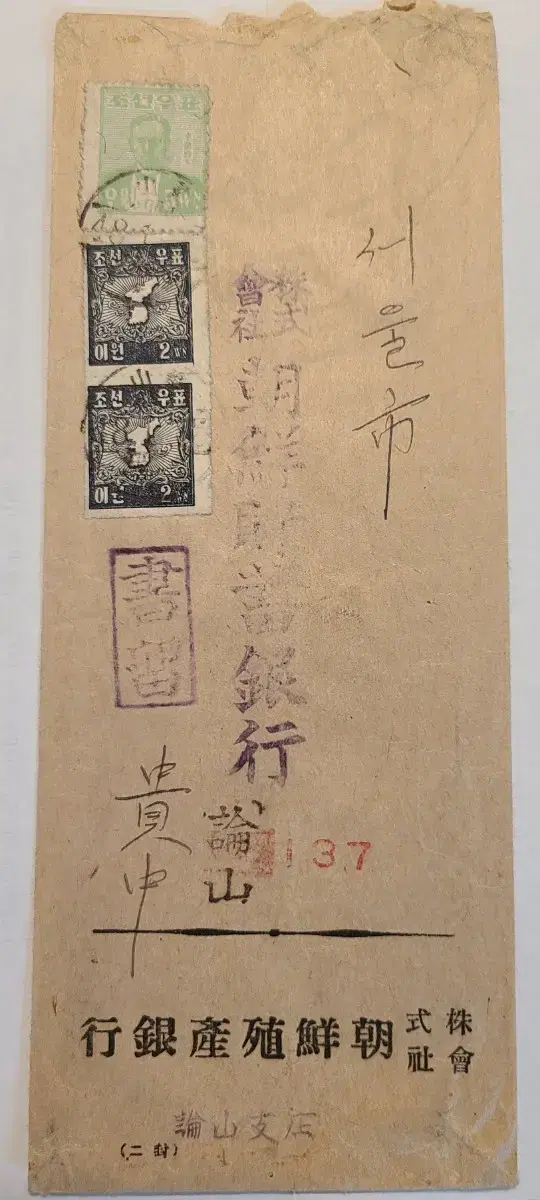 서울市
株式
會社
朝鮮貯蓄銀行
조선 우표
이원 2 WN
조선 우표
이원 2 WN
書留
貴中
論山
137
株式
會社
行銀產殖鮮朝
論山支店
(二封)